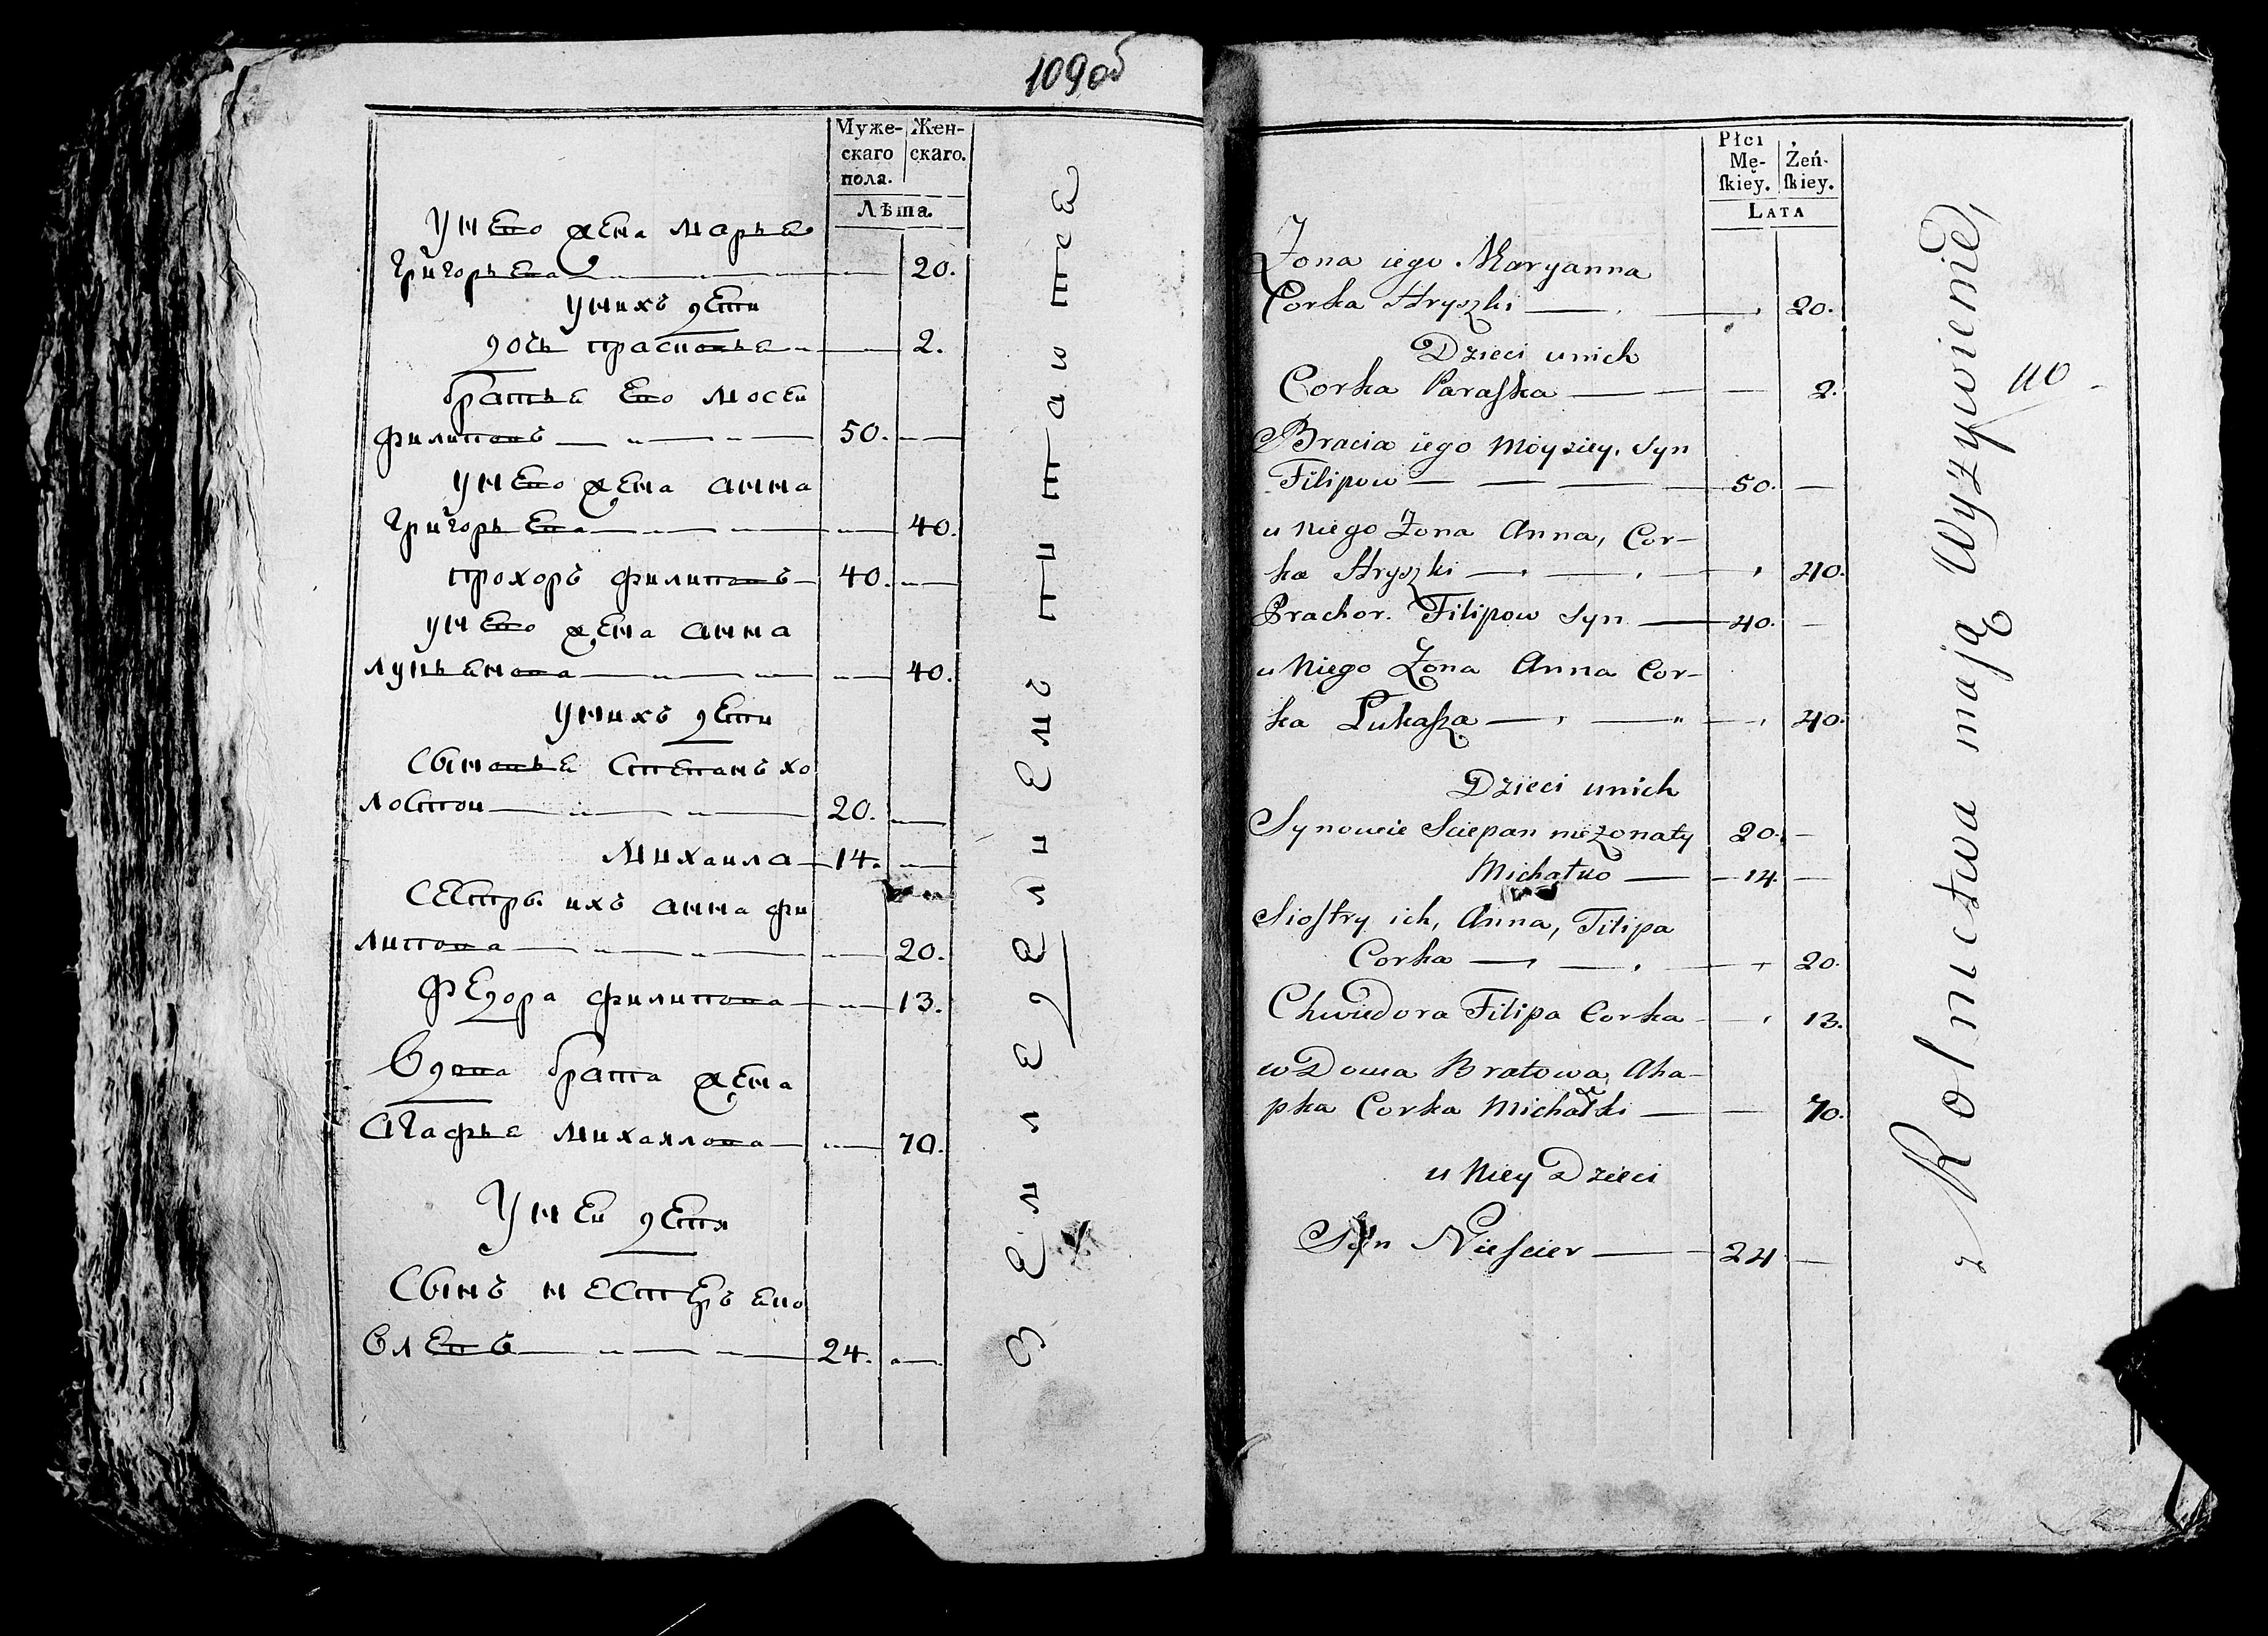 109об
Муже- Жен-
скаго скаго.
пола.
Лѣта.
у нево жена марья
Григорьева 20.
у нихъ дети
дочь прасковья 2.
братья ево мосеи
филиповъ 50.
у нево жена анна
Григорьева 40.
прохоръ филиповъ 40.
у нево жена анна
лукьянова 40.
у нихъ дети
Сыновья Степанъ хо
лостои 20.
Михаила 14.
Сестры ихъ анна фи
липова 20.
Федора филипова 13.
Вдова брата жена
Агафья михаилова 70.
У неи дети
Сынъ нестеръ
24.
Земледелиемъ питаютца
Płci
Mę- Żeń-
skiey. skiey.
Lata
Zona iego Maryanna
Corka Hryszki 20.
Dzieci unich
Corka Paraska 2.
Bracia iego Moysiey, Syn
Filipow 50.
u niego Zona Anna, Cor-
ka Hryszki 40.
Prachor. Filipow Syn 40.
u Niego Zona Anna Cor-
ka Łukasza 40.
Dzieci unich
Synowie Sciepan niezonaty 20.
Michałko 14
Siostry ich, Anna, Filipa
Corka 20.
Chwiedora Filipa Corka 13.
wDowa Bratowa, Aha-
pka Corka Michałki 70.
u Niey Dzieci
Syn Niescier 24
z Rolnictwa mają Wyzywienie,
110